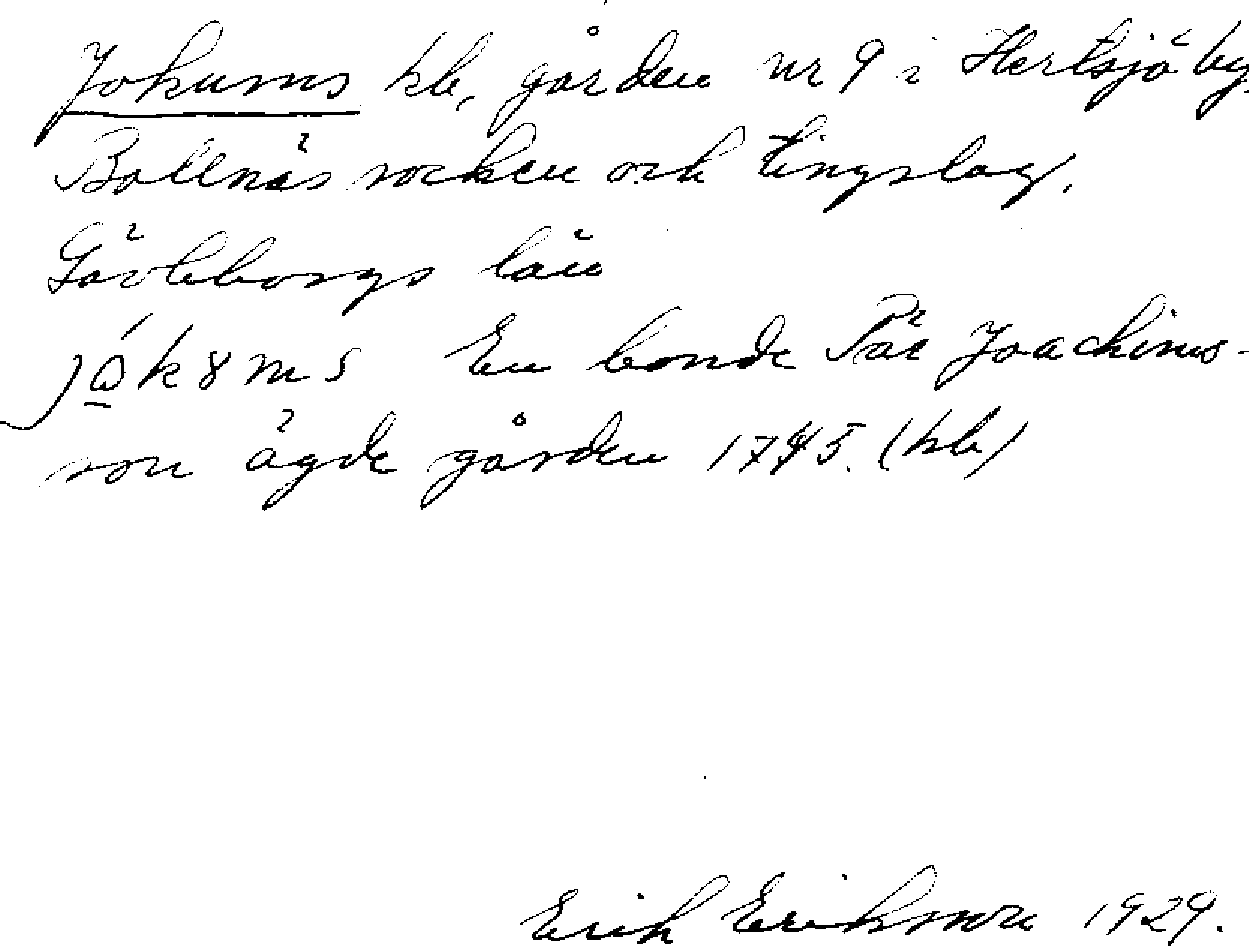 Jokums kb, gården nr 9 i Hertsjö by.
Bollnäs socken och tingslag,
Gävleborgs län
jók8ms En bonde Pär Joachims-
son ägde gården 1745. (kb)
Erik Eriksson 1929.